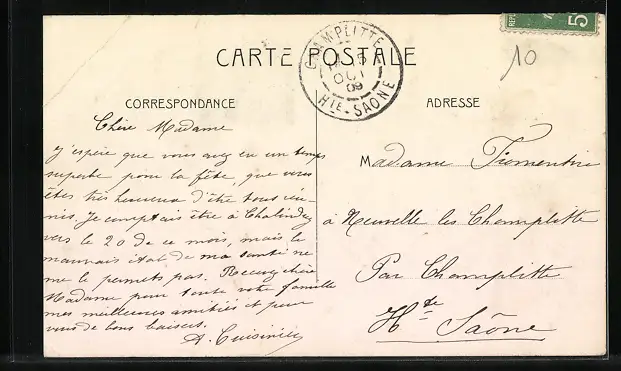 CARTE POSTALE
CHAMPLITTE
OCT
09
HTE-SAONE
5
10
CORRESPONDANCE
ADRESSE
Chère Madame
J'espère que vous avez eu un temps
superbe pour la fête, que vous
êtes très heureux d'être tous réu-
nis. Je comptais être à Chalindrey
vers le 20 de ce mois, mais le
mauvais état de ma santé ne
me le permets pas. Recevez chère
Madame pour toute votre famille
mes meilleures amitiés et pour
vous de bons baisers.
A. Cuisinier
Madame
à Neuvelle les Champlitte
Par Champlitte
Hte Saône